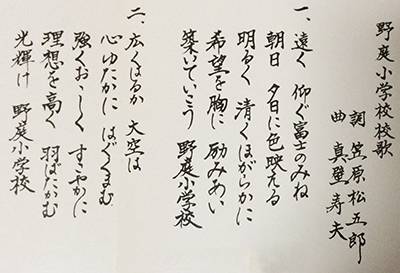 野庭小学校校歌
詞 笠原松五郎
曲 真壁寿夫
一、遠く 仰ぐ富士のみね
朝日 夕日に色映える
明るく 清くほがらかに
希望を胸に 励みあい
築いていこう 野庭小学校
二、広くはるか 大空は
心ゆたかに はぐくまむ
強くおゝしく すこやかに
理想を高く 羽ばたかむ
光輝け 野庭小学校